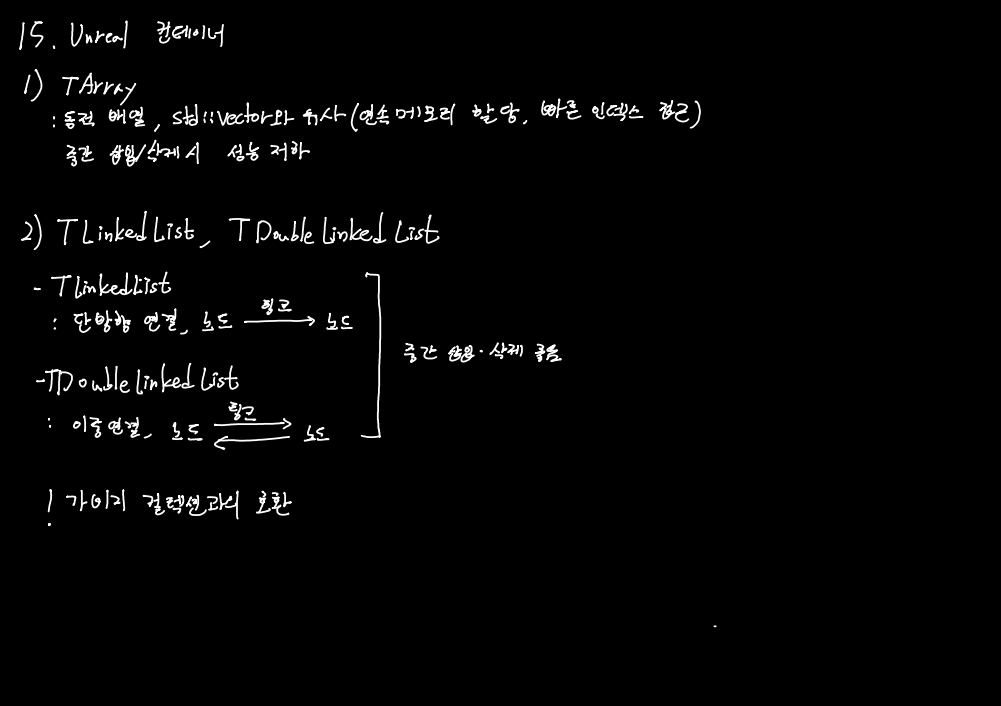 15. Unreal 컨테이너
1) TArray
: 동적 배열, std::vector와 유사 (연속 메모리 할당, 빠른 인덱스 접근)
중간 삽입/삭제 시 성능 저하
2) TLinkedList, TDoubleLinkedList
- TLinkedList
: 단방향 연결, 노드 링크 → 노드
중간 삽입·삭제 좋음
- TDoubleLinkedList
: 이중연결, 노드 링크 ⇄ 노드
! 가비지 컬렉션과의 호환